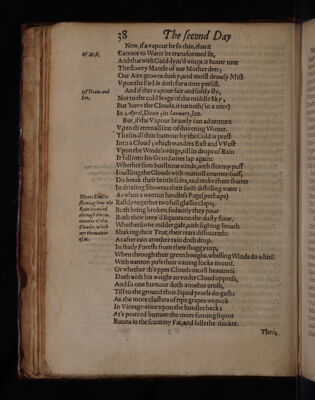 38 The second Day
Now, if a vapour be so thin, that it
Of Mist.
Cannot to Water be transformed fit,
And that with Cold-lym'd wings it houer neer
The flowry Mantle of our Mother deer;
Our Aire growes dusky, and moist drowsy Mist
Vpon the Field is doth for a time persist.
Of Deaw and Ice.
And if this vapour fair and softly fly,
Not to the cold Stage of the middle Sky,
But 'boue the Clouds, it turneth (in a trice)
In April, Deaw; in Ianuary, Ice.
But, if the Vapour brauely can aduenture
Vp to th' eternall seat of shivering Winter,
The small thin humour by the Cold is prest
Into a Cloud; which wanders East and West
Vpon the Winde's wings, till in drops of Rain
It fall into his Grandames lap again:
Whether som boistrous winde, with stormy puff
Ioustling the Clouds with mutuall counter-buff,
Do break their brittle sides, and make them shatter
In drizling Showrs their swift distilling water:
Diuers
As when a wanton heedless Page (perhaps)
Rashly together two full glasses claps;
Both being broken, sodainly they pour
Both their brew'd liquors on the dusty floor.
Whether som milder gale, with sighing breath
Shaking their Tent, their tears disseuereth:
As after rain another rain doth drop
In shady Forests from their shaggy top,
When through their green boughs, whiffing Winds do whirl
With wanton pufs their wauing locks to curl.
Or whether th'vpper Clouds moist heauiness
Doth with his waight an vnder Cloud oppress,
And so one humour doth another crush,
Till to the ground their liquid pearls do gush:
As the more clusters of ripe grapes we pack
In Vintage-time vpon the hurdles back;
At's pearced bottom the more fuming liquor
Runns in the scummy Fat, and falls the thicker.
Then,